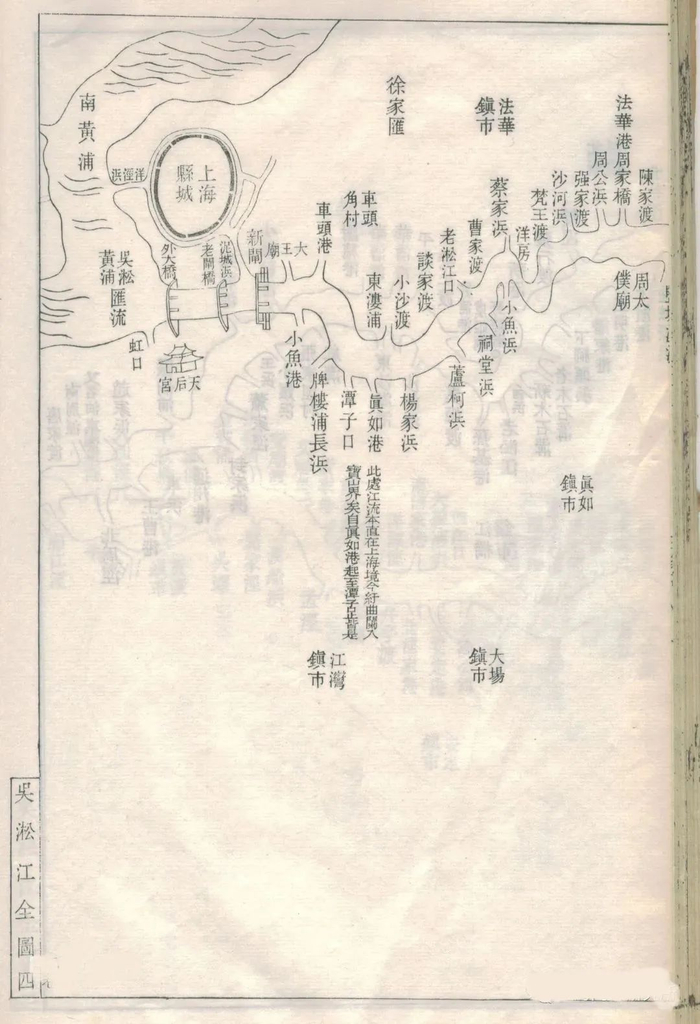 法華港周家橋
陳家渡
周公浜
强家渡
沙河浜
梵王渡
洋房
法華
鎮市
蔡家浜
曹家渡
老淞江口
談家渡
小沙渡
東漊浦
徐家匯
車頭
角村
車頭港
大王廟
新閘
泥城浜
老閘橋
外大橋
上海
縣城
洋涇浜
南黃浦
吳淞
黃浦
匯流
虹口
天后宮
小魚港
牌樓浦長浜
潭子口
眞如港
楊家浜
蘆柯浜
祠堂浜
小魚浜
周太
僕廟
眞如
鎮市
此處江流本直在上海境今紆曲闌入
寶山界矣自眞如港起至潭子口皆是
大場
鎮市
江灣
鎮市
吳淞江全圖四